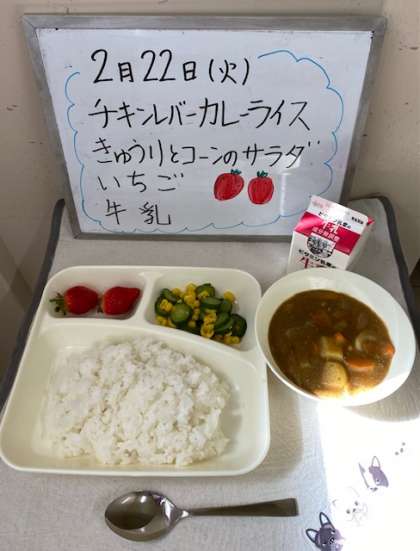 2月22日(火)
チキンレバーカレーライス
きゅうりとコーンのサラダ
いちご
牛乳
牛乳